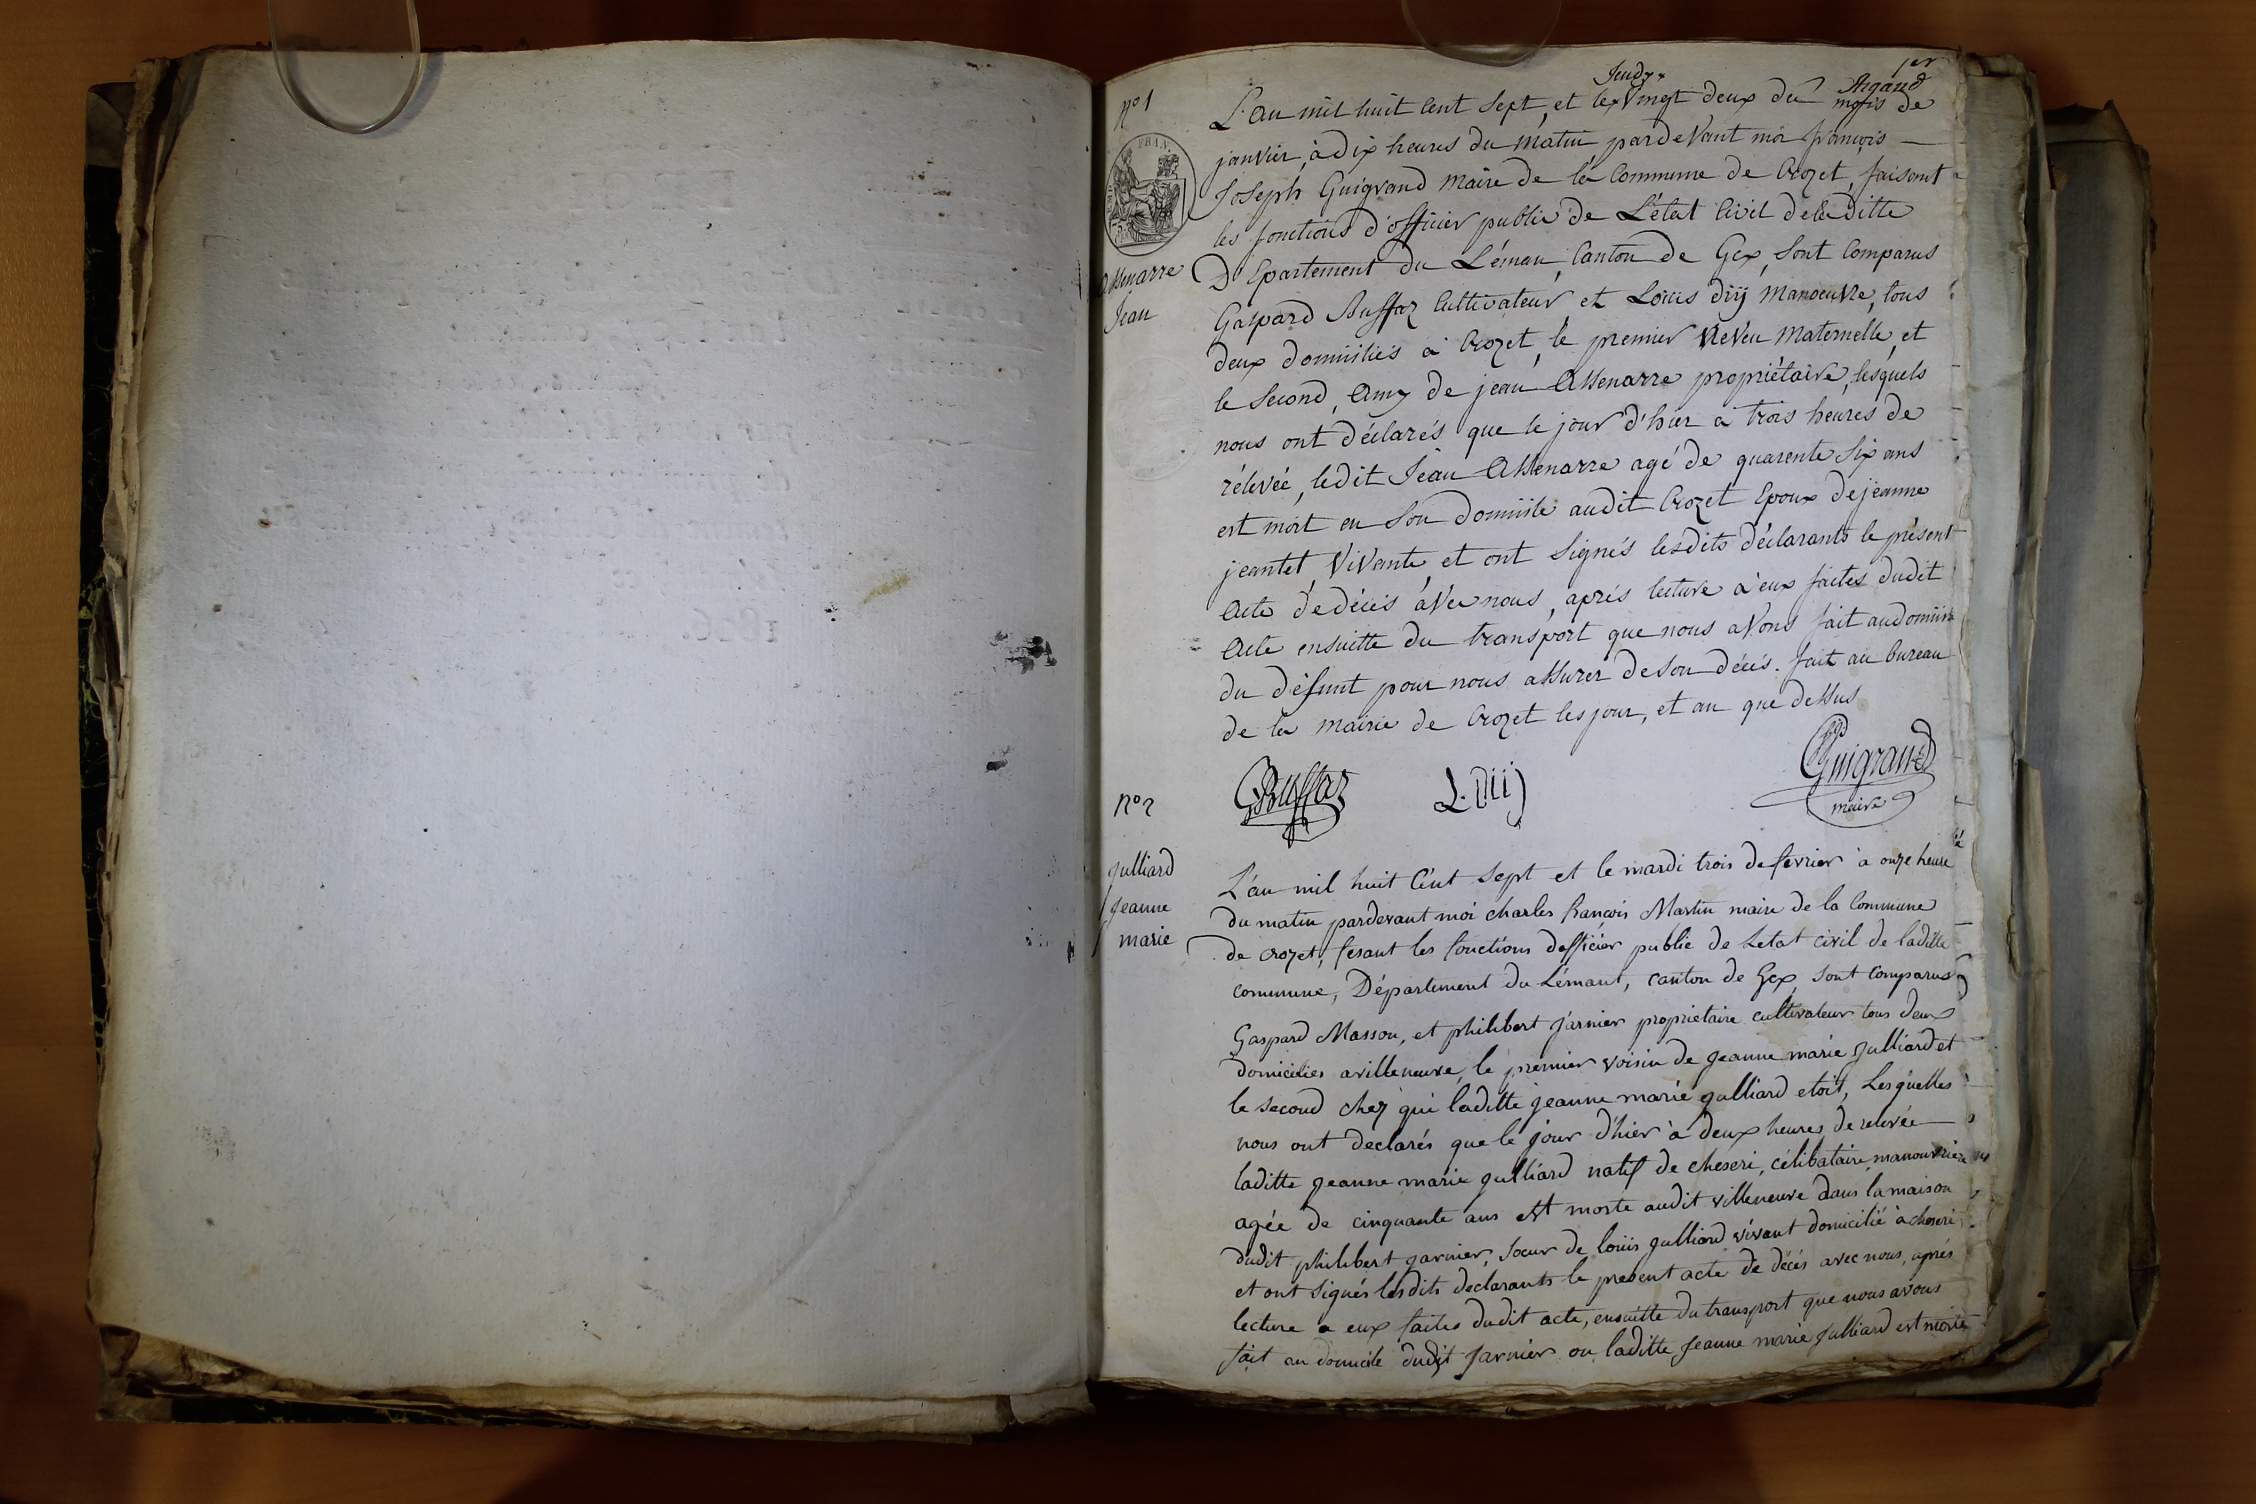 1er
Argand
Jeudy
n° 1
L'an mil huit cent sept, et le vingt deux du mois de
janvier, à dix heures du matin pardevant moi françois
Joseph Guigrand maire de la Commune de Crozet, faisant
les fonctions d'officier public de L'état Civil de laditte
FRAN
Assenarre
Jean
D'Epartement du Léman, Canton de Gex, sont Comparus
Gaspard Buffaz Cultivateur, et Loüis Diij Manoeuvre, tous
deux domiciliés à Crozet, le premier Neveu Maternelle, et
le Second, Amy de jean Assenarre propriétaire, lesquels
nous ont déclarés que le jour d'hier à trois heures de
rélevée, ledit Jean Assenarre agé de quarente Six ans
est mort en Son domicile audit Crozet Epoux de jeanne
jeantet, Vivante, et ont Signés lesdits déclarants le présent
Acte de décès aVec nous, après lecture à eux faites dudit
Acte ensuitte du transport que nous aVons fait au domicile
du défunt pour nous assurer de Son décès. fait au bureau
de la mairie de Crozet les jour, et an que dessus
GBuffaz L. Diij Guigrand
maire
n° 2
julliard
jeanne
marie
L'an mil huit Cent Sept et le mardi trois de fevrier à onze heure
du matin pardevant moi charles françois Martin maire de la Commune
de crozet, fesant les fonctions d'officier public de Letat civil de laditte
commune, Département du Lémant, canton de Gex, sont Comparus
Gaspard Masson, et philibert jarnier proprietaire cultivateur tous deux
domicilies a villeneuve, le premier voisin de jeanne marie julliard et
le second chez qui laditte jeanne marie julliard etoit, Lesquelles
nous ont declarés que le jour d'hier à deux heures de relevée
laditte jeanne marie julliard natif de cheseri, célibataire, manouvriere
agée de cinquante ans est morte audit villeneuve dans la maison
dudit philibert jarnier, Soeur de loüis julliard vivant domicilié à cheseri
et ont Signés lesdits declarants le present acte de décès avec nous, après
lecture a eux faites dudit acte, ensuitte du transport que nous avons
fait au domicile dudit jarnier ou laditte jeanne marie julliard est morte